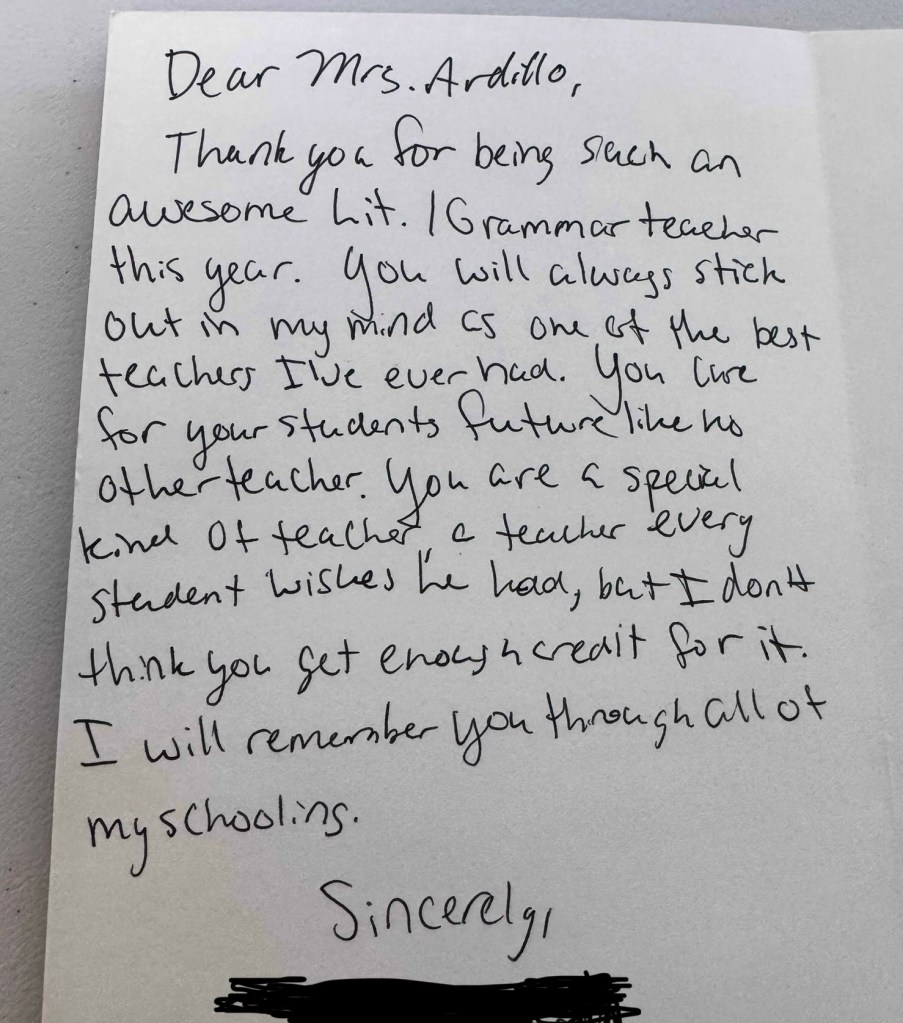 Dear Mrs. Ardillo,
Thank you for being such an
awesome Lit. / Grammar teacher
this year. You will always stick
out in my mind as one of the best
teachers I've ever had. You care
for your students future like no
other teacher. You are a special
kind of teacher, a teacher every
student wishes he had, but I don't
think you get enough credit for it.
I will remember you through all of
my schooling.
Sincerely,